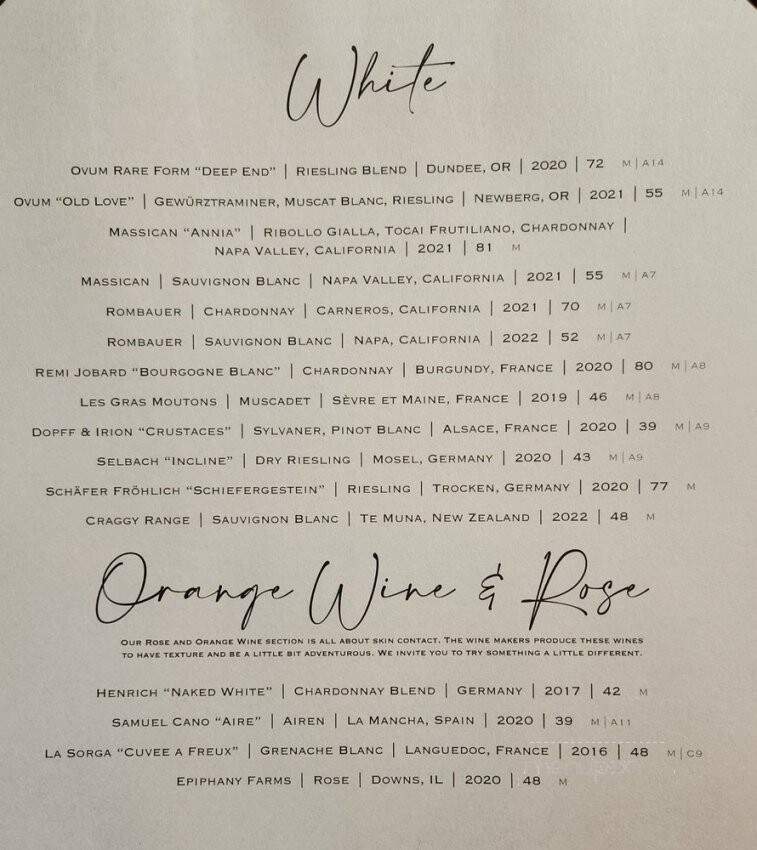 White
Ovum Rare Form “Deep End” | Riesling Blend | Dundee, OR | 2020 | 72 M | A14
Ovum “Old Love” | Gewürztraminer, Muscat Blanc, Riesling | Newberg, OR | 2021 | 55 M | A14
Massican “Annia” | Ribollo Gialla, Tocai Frutiliano, Chardonnay |
Napa Valley, California | 2021 | 81 M
Massican | Sauvignon Blanc | Napa Valley, California | 2021 | 55 M | A7
Rombauer | Chardonnay | Carneros, California | 2021 | 70 M | A7
Rombauer | Sauvignon Blanc | Napa, California | 2022 | 52 M | A7
Remi Jobard “Bourgogne Blanc” | Chardonnay | Burgundy, France | 2020 | 80 M | A8
Les Gras Moutons | Muscadet | Sèvre et Maine, France | 2019 | 46 M | A8
Dopff & Irion “Crustaces” | Sylvaner, Pinot Blanc | Alsace, France | 2020 | 39 M | A9
Selbach “Incline” | Dry Riesling | Mosel, Germany | 2020 | 43 M | A9
Schäfer Fröhlich “Schiefergestein” | Riesling | Trocken, Germany | 2020 | 77 M
Craggy Range | Sauvignon Blanc | Te Muna, New Zealand | 2022 | 48 M
Orange Wine & Rose
Our Rose and Orange Wine section is all about skin contact. The wine makers produce these wines
to have texture and be a little bit adventurous. We invite you to try something a little different.
Henrich “Naked White” | Chardonnay Blend | Germany | 2017 | 42 M
Samuel Cano “Aire” | Airen | La Mancha, Spain | 2020 | 39 M | A11
La Sorga “Cuvee a Freux” | Grenache Blanc | Languedoc, France | 2016 | 48 M | C9
Epiphany Farms | Rose | Downs, IL | 2020 | 48 M